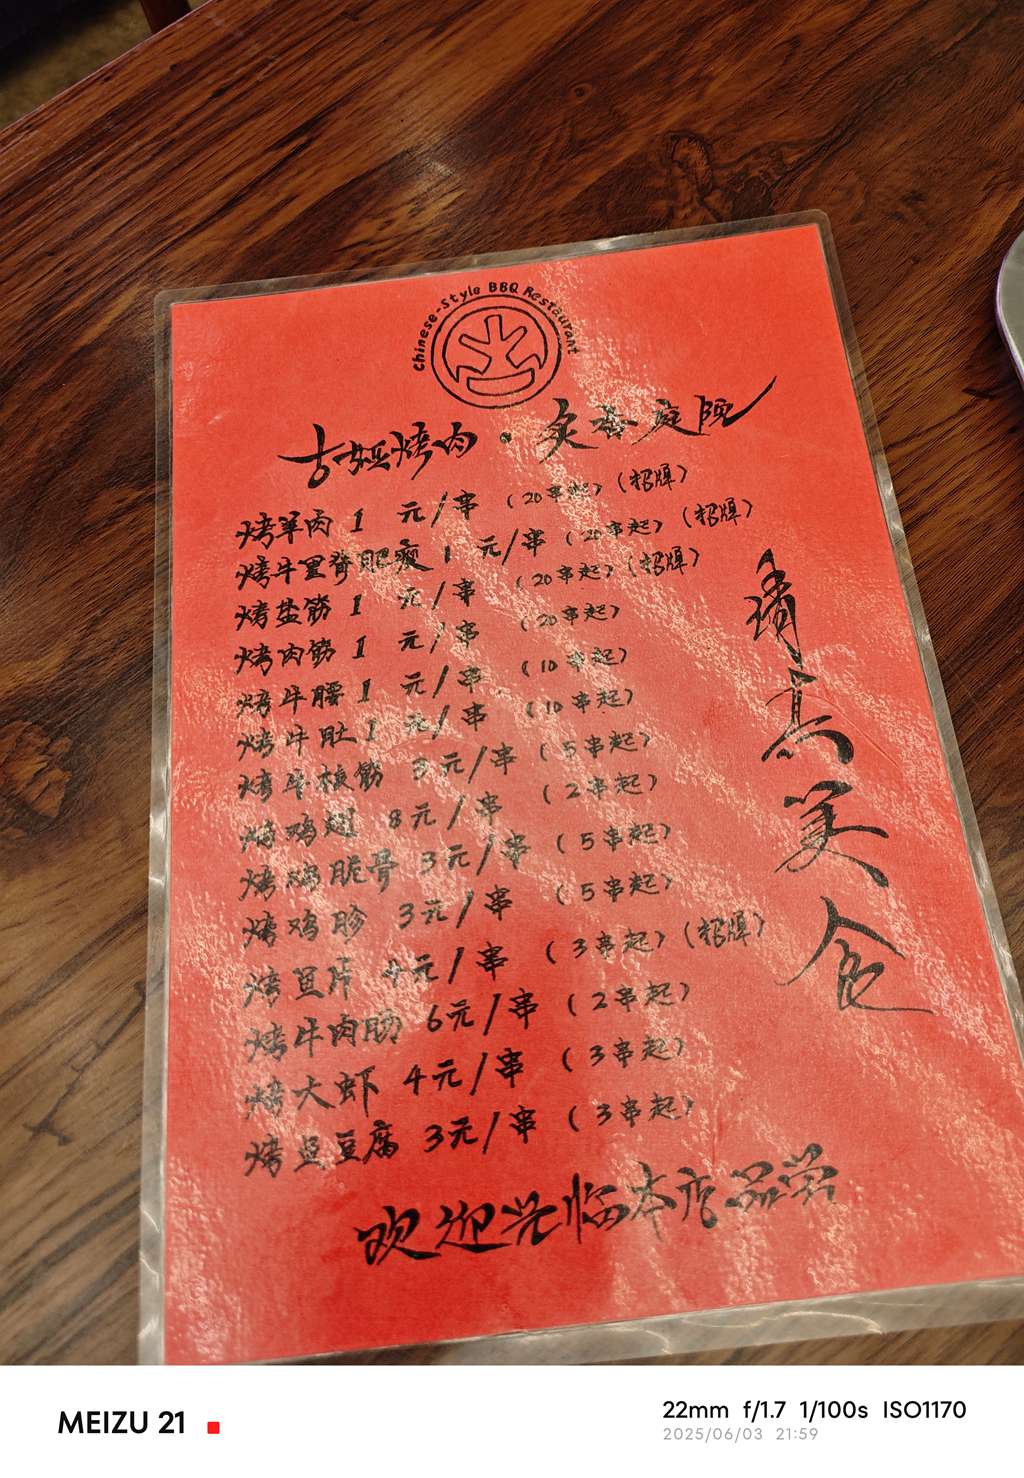 Chinese-Style BBQ Restaurant
古娅烤肉·炙香庭院
烤羊肉 1 元/串 (20串起)(招牌)
烤牛里脊肥瘦 1 元/串 (20串起)(招牌)
烤盐筋 1 元/串 (20串起)(招牌)
烤肉筋 1 元/串 (20串起)
烤牛腰 1 元/串 (10串起)
烤牛肚 1 元/串 (10串起)
烤牛板筋 3元/串 (5串起)
烤鸡翅 8元/串 (2串起)
烤鸡脆骨 3元/串 (5串起)
烤鸡胗 3元/串 (5串起)
烤鱼片 4元/串 (3串起)(招牌)
烤牛肉肠 6元/串 (2串起)
烤大虾 4元/串 (3串起)
烤鱼豆腐 3元/串 (3串起)
请点美食
欢迎光临本店品尝
MEIZU 21
22mm f/1.7 1/100s ISO1170
2025/06/03 21:59